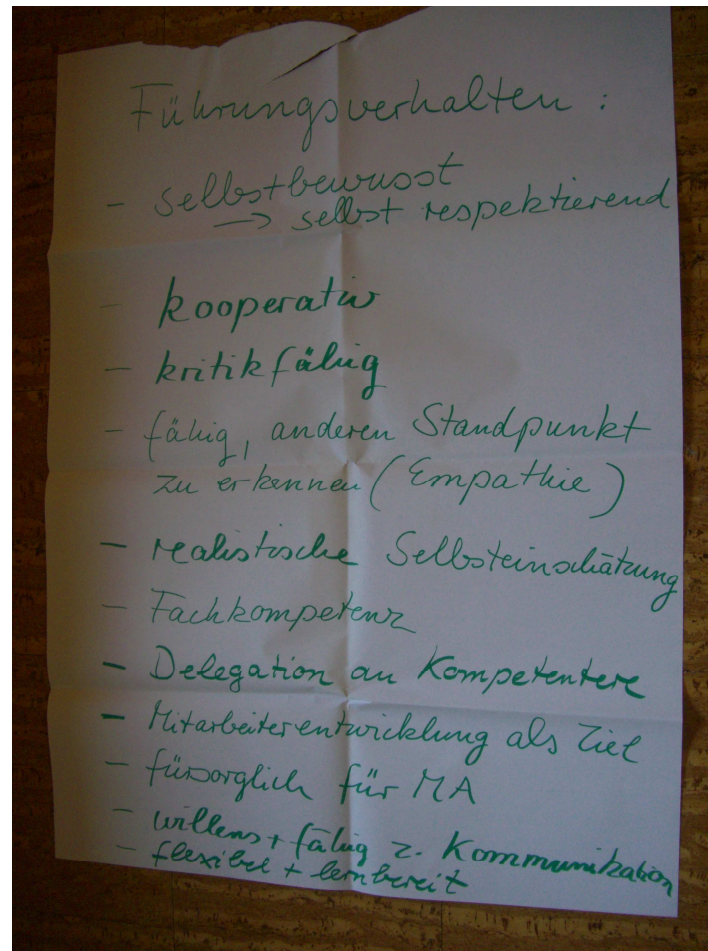 Führungsverhalten :
- selbstbewusst
→ selbst respektierend
- kooperativ
- kritikfähig
- fähig, anderen Standpunkt
zu erkennen (Empathie)
- realistische Selbsteinschätzung
- Fachkompetenz
- Delegation an Kompetentere
- Mitarbeiterentwicklung als Ziel
- fürsorglich für MA
- willens + fähig z. Kommunikation
- flexibel + lernbereit